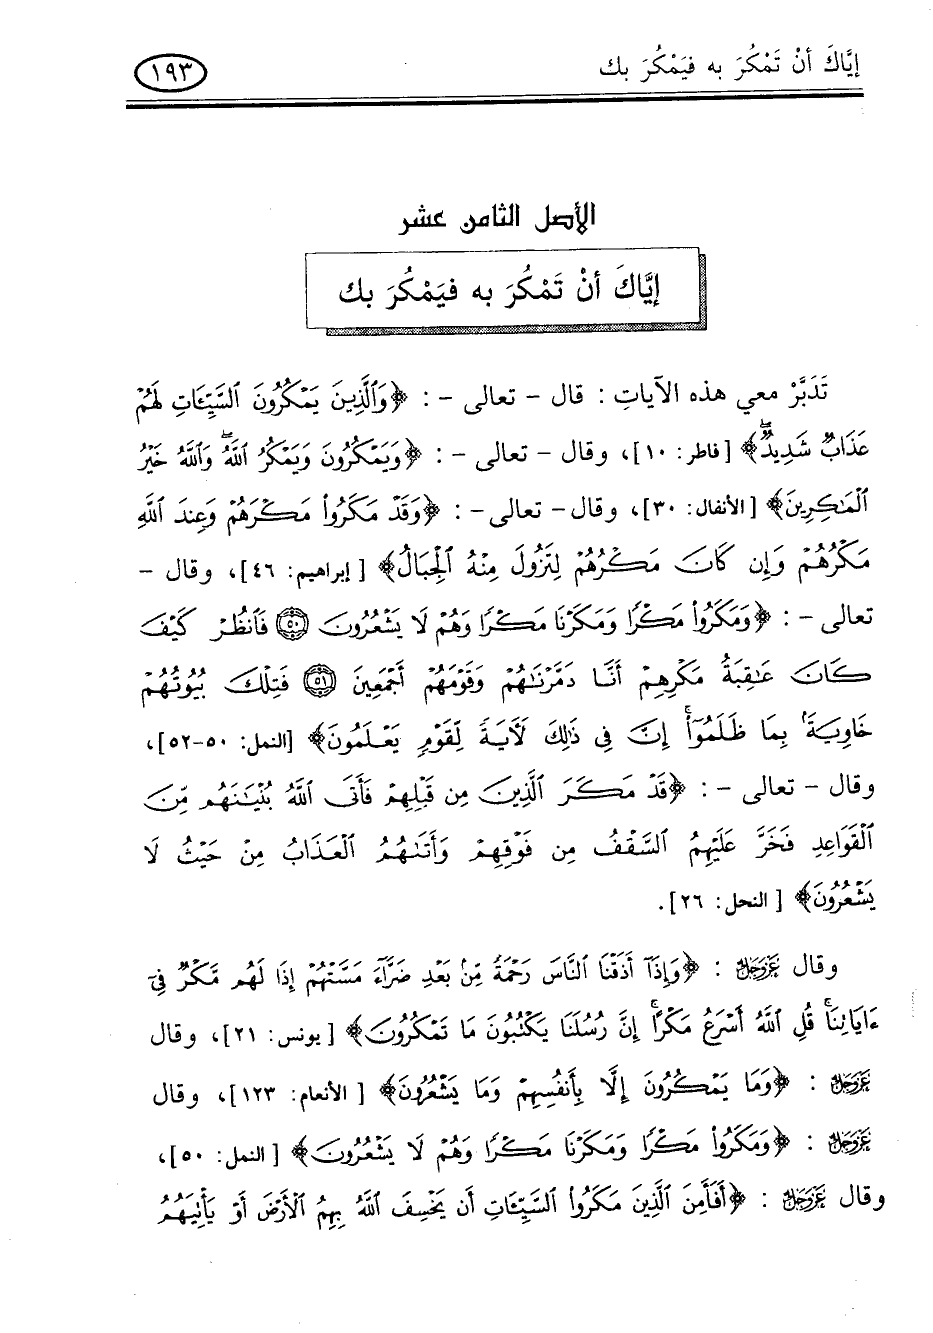 إيَّاكَ أنْ تَمْكُرَ به فيَمْكُرَ بك
١٩٣
الأصل الثامن عشر
إيَّاكَ أنْ تَمْكُرَ به فيَمْكُرَ بك
تَدَبَّرْ معي هذه الآياتِ : قال - تعالى - : ﴿وَٱلَّذِينَ يَمْكُرُونَ ٱلسَّيِّـَٔاتِ لَهُمْ
عَذَابٌ شَدِيدٌۖ﴾ [فاطر: ١٠]، وقال - تعالى - : ﴿وَيَمْكُرُونَ وَيَمْكُرُ ٱللَّهُۖ وَٱللَّهُ خَيْرُ
ٱلْمَٰكِرِينَ﴾ [الأنفال: ٣٠]، وقال - تعالى - : ﴿وَقَدْ مَكَرُوا۟ مَكْرَهُمْ وَعِندَ ٱللَّهِ
مَكْرُهُمْ وَإِن كَانَ مَكْرُهُمْ لِتَزُولَ مِنْهُ ٱلْجِبَالُ﴾ [إبراهيم: ٤٦]، وقال -
تعالى - : ﴿وَمَكَرُوا۟ مَكْرًا وَمَكَرْنَا مَكْرًا وَهُمْ لَا يَشْعُرُونَ ۝٥٠ فَٱنظُرْ كَيْفَ
كَانَ عَٰقِبَةُ مَكْرِهِمْ أَنَّا دَمَّرْنَٰهُمْ وَقَوْمَهُمْ أَجْمَعِينَ ۝٥١ فَتِلْكَ بُيُوتُهُمْ
خَاوِيَةًۢ بِمَا ظَلَمُوٓا۟ۚ إِنَّ فِى ذَٰلِكَ لَـَٔايَةً لِّقَوْمٍ يَعْلَمُونَ﴾ [النمل: ٥٠-٥٢]،
وقال - تعالى - : ﴿قَدْ مَكَرَ ٱلَّذِينَ مِن قَبْلِهِمْ فَأَتَى ٱللَّهُ بُنْيَٰنَهُم مِّنَ
ٱلْقَوَاعِدِ فَخَرَّ عَلَيْهِمُ ٱلسَّقْفُ مِن فَوْقِهِمْ وَأَتَىٰهُمُ ٱلْعَذَابُ مِنْ حَيْثُ لَا
يَشْعُرُونَ﴾ [النحل: ٢٦].
وقال عَزَّوَجَلَّ : ﴿وَإِذَآ أَذَقْنَا ٱلنَّاسَ رَحْمَةً مِّنۢ بَعْدِ ضَرَّآءَ مَسَّتْهُمْ إِذَا لَهُم مَّكْرٌ فِىٓ
ءَايَاتِنَاۚ قُلِ ٱللَّهُ أَسْرَعُ مَكْرًاۚ إِنَّ رُسُلَنَا يَكْتُبُونَ مَا تَمْكُرُونَ﴾ [يونس: ٢١]، وقال
عَزَّوَجَلَّ : ﴿وَمَا يَمْكُرُونَ إِلَّا بِأَنفُسِهِمْ وَمَا يَشْعُرُونَ﴾ [الأنعام: ١٢٣]، وقال
عَزَّوَجَلَّ : ﴿وَمَكَرُوا۟ مَكْرًا وَمَكَرْنَا مَكْرًا وَهُمْ لَا يَشْعُرُونَ﴾ [النمل: ٥٠]،
وقال عَزَّوَجَلَّ : ﴿أَفَأَمِنَ ٱلَّذِينَ مَكَرُوا۟ ٱلسَّيِّـَٔاتِ أَن يَخْسِفَ ٱللَّهُ بِهِمُ ٱلْأَرْضَ أَوْ يَأْتِيَهُمُ